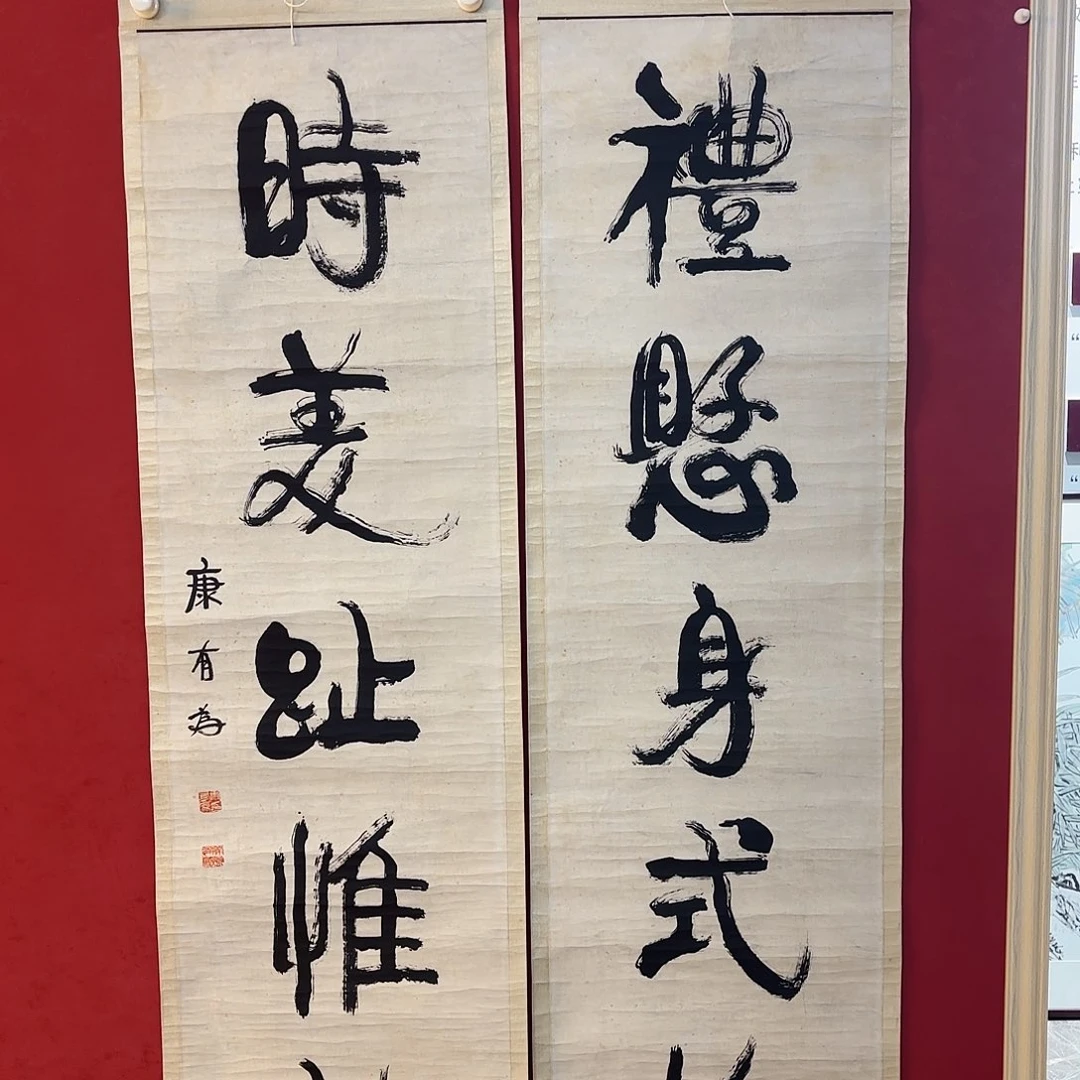 禮懸身式
時美趾惟
康有為